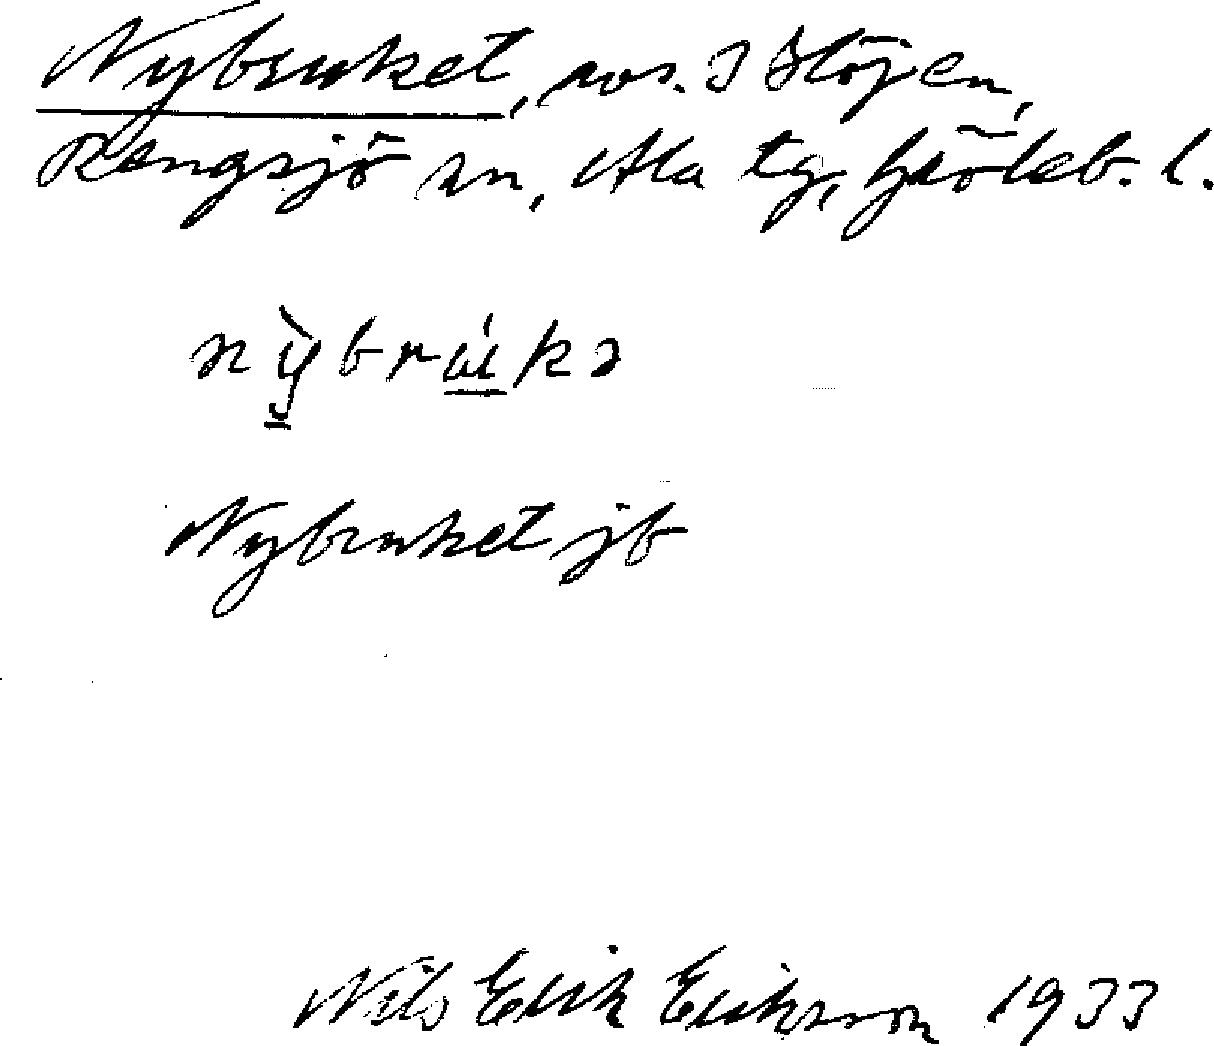 Nybruket, avs. Höjen,
Rengsjö sn, Ala tg, Gävleb. l.
nỳbrúkə
Nybruket jb
Nils Erik Eriksson 1933